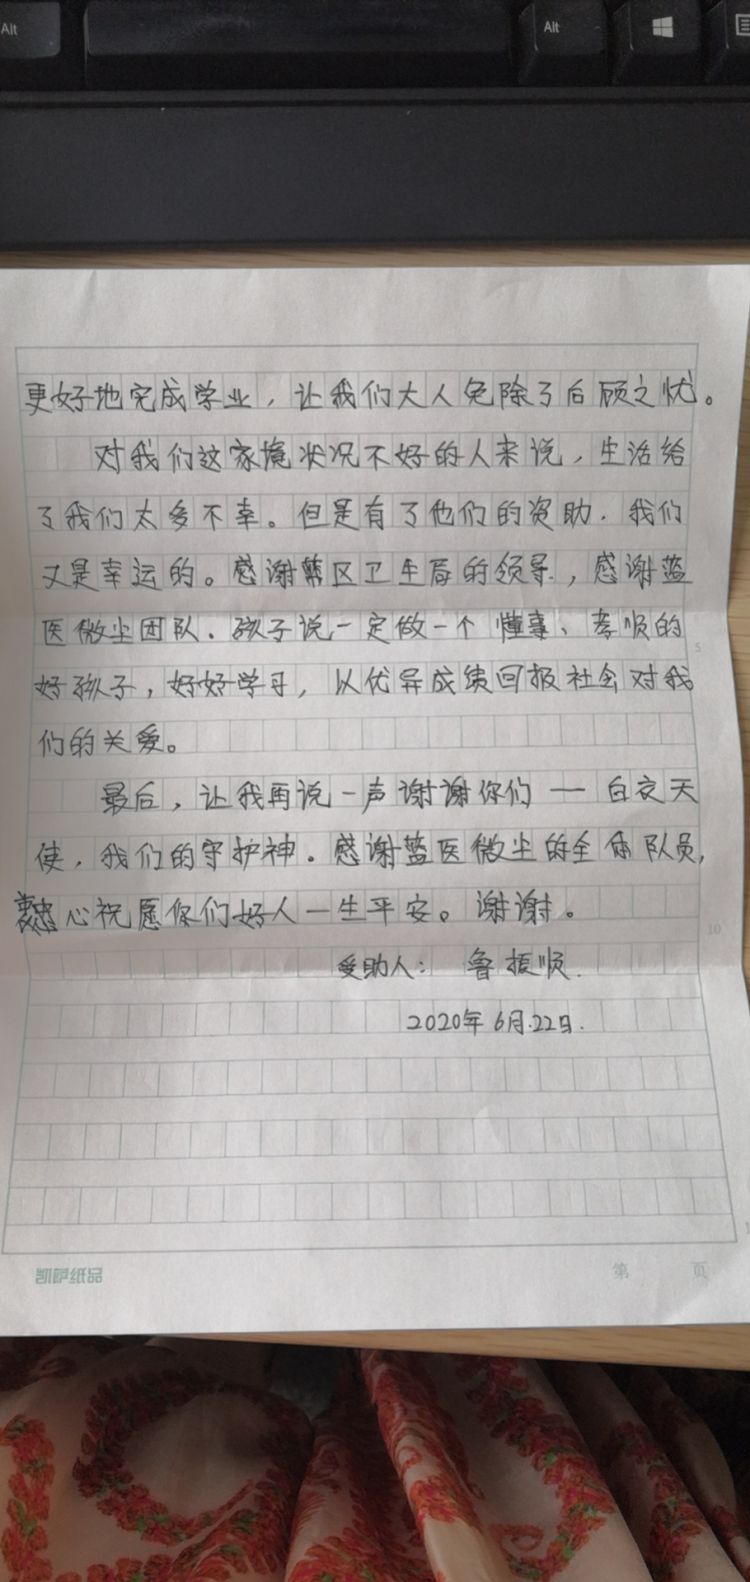 Alt
Alt
更好地完成学业，让我们大人免除了后顾之忧。
对我们这家境状况不好的人来说，生活给
了我们太多不幸。但是有了他们的资助．我们
又是幸运的。感谢蓝区卫生局的领导，感谢蓝
医微尘团队．孩子说一定做一个懂事、孝顺的
好孩子，好好学习，以优异成绩回报社会对我
们的关爱。
最后，让我再说一声谢谢你们 — 白衣天
使，我们的守护神。感谢蓝医微尘的全体队员，
心祝愿你们好人一生平安。谢谢。
受助人： 鲁振顺．
2020年6月.22日．
凯萨纸品
第 页
5
10